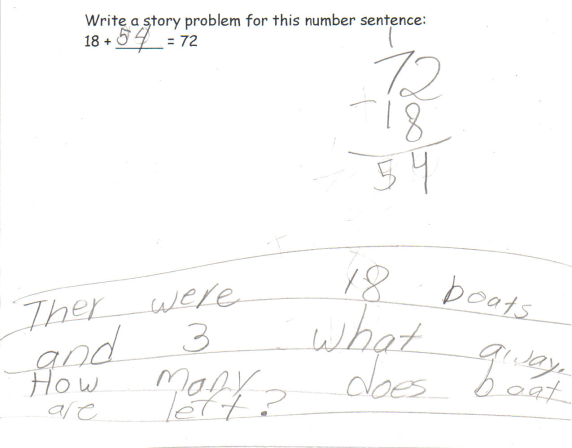 Write a story problem for this number sentence:
18 + 54 = 72
1
72
- 18
54
Ther were 18 boats
and 3 what away.
How many does boat
are left?